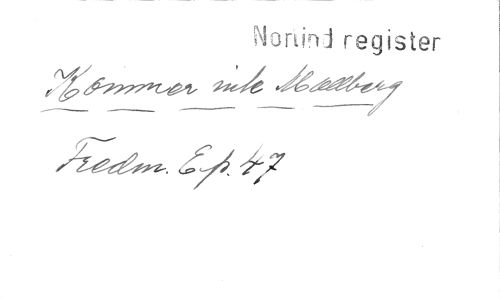 Norlind register
Kommer inte Mollberg
Fredm. Ep. 47